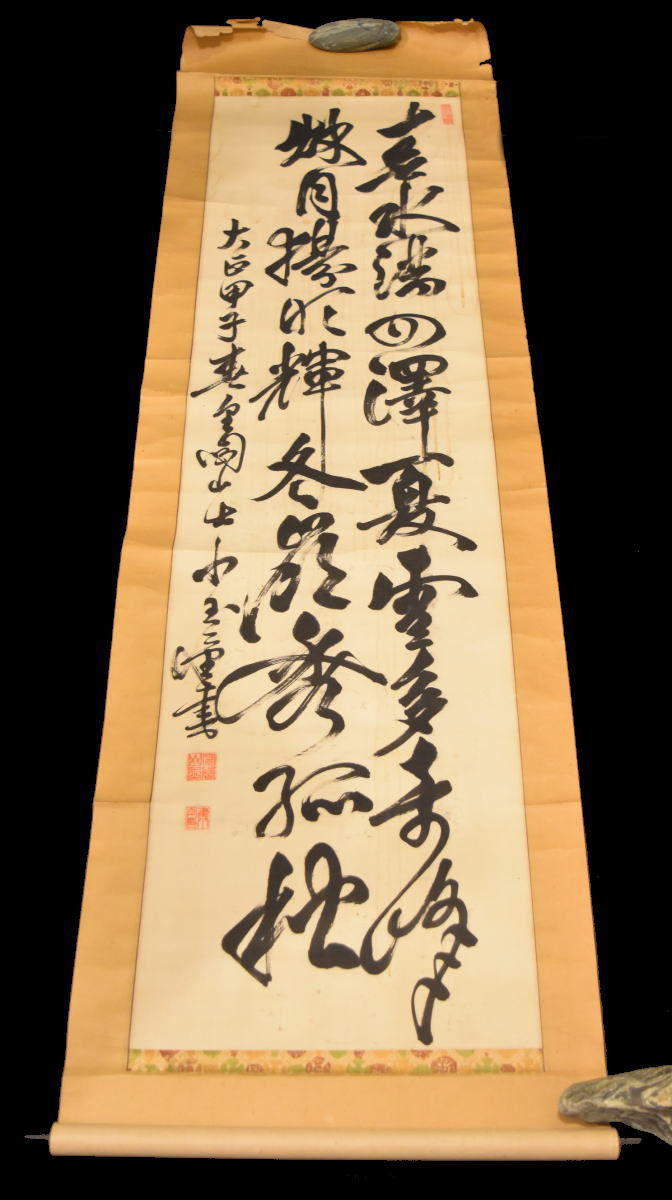 春水満四澤夏雲多奇峰
秋月揚明輝冬嶺秀孤松
大正甲子春 山士小玉 書